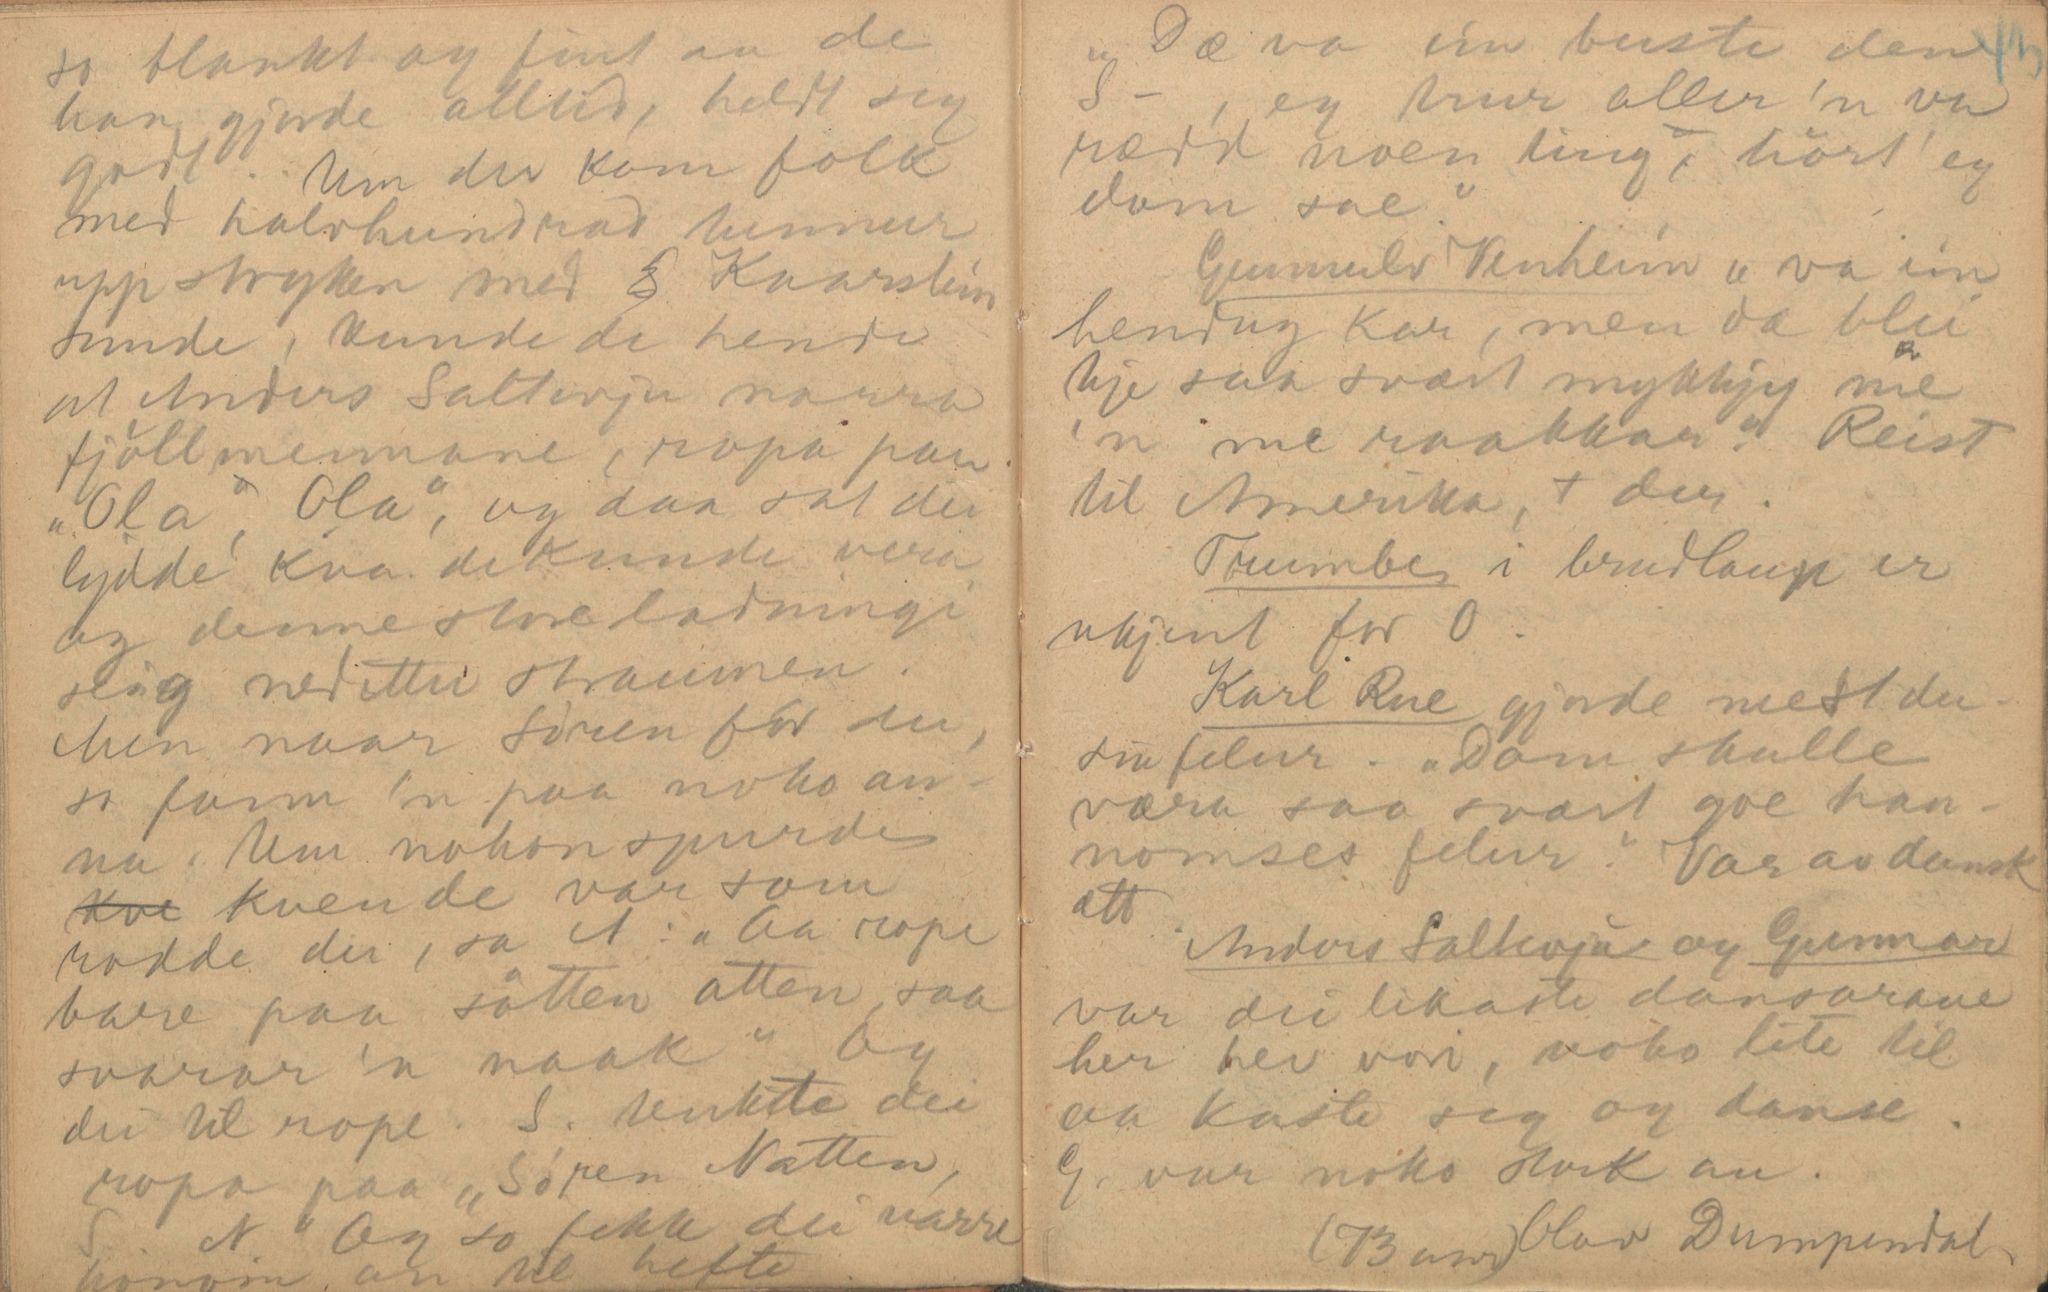 so blankt og fint aa de
han gjorde alltid, heldt seg
godt. Um der kom folk
med halvhundrad tunnur
uppstryken med Kaarstein
sunde, kunde de hende
at Anders Saltevju narra
fjöllmennane, ropa paa
„Ola", Ola", og daa sat dei
lydde kva de kunde vera,
og denne store ladningi
seig nedetter straumen.
Men naar Sören for der,
so fann 'n paa noko an-
na. Um nokon spurde
Kve kven de var som
rodde der, sa A: „Aa rope
bare paa sötten atten, saa
svarar 'n naak" Og
dei til rope. S. tenkte dei
ropa paa „Sören Natten,
S. N." Og so fekk dei varre
honom an til hefte
43
„Dæ va ein beiste den
S–, eg trur aller 'n va
rædd noen ting, hört' eg
dom sae."
Gunnulv Venheim „va ein
hendug kar, men dæ blei
kje saa svært mykkjy me
'n me raakkar." Reist
til Amerika, † der.
Trumbe i brudlaup er
ukjent for O.
Karl Rue gjorde mest der-
sin felur. „Dom skulle
væra saa svært goe han-
nomses felur." Var av dansk
ætt.
Anders Saltevju og Gunnar
var dei likaste dansarane
her hev vori, noko lite til
aa kaste seg og danse.
G. var noko sterk au.
Olav Dumpendal